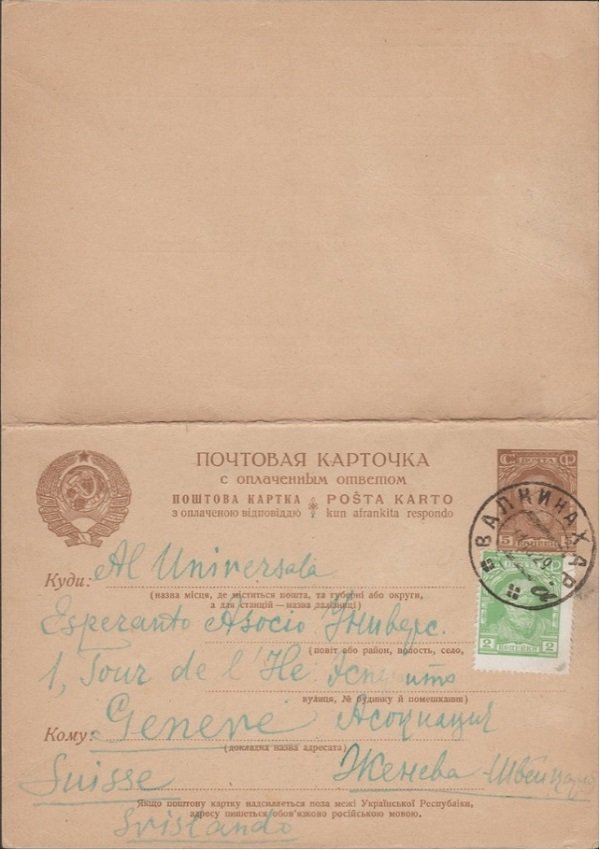 ПОЧТОВАЯ КАРТОЧКА
с оплаченным ответом
ПОШТОВА КАРТКА
з оплаченою відповіддю
POŜTA KARTO
kun afrankita respondo
С ПОЧТА Ф
5 КОПЕЕК 5
ВАЛКИ НА ХАР
2 КОПЕЙКИ 2
Куди: Al Universala
(назва місця, де міститься пошта, та губерні або округи,
а для станцій — назва залізниці)
Esperanto Asocio Универс.
(повіт або район, волость, село,
1, Tour de l'Ile Эсперанто
вулиця, № будинку й помешкання)
Кому: Genève Асоциация
(докладна назва адресата)
Suisse Женева Швейцария
Якщо поштову картку надсилається поза межі Української Республіки,
адресу пишеться обов'язково російською мовою.
Svislando